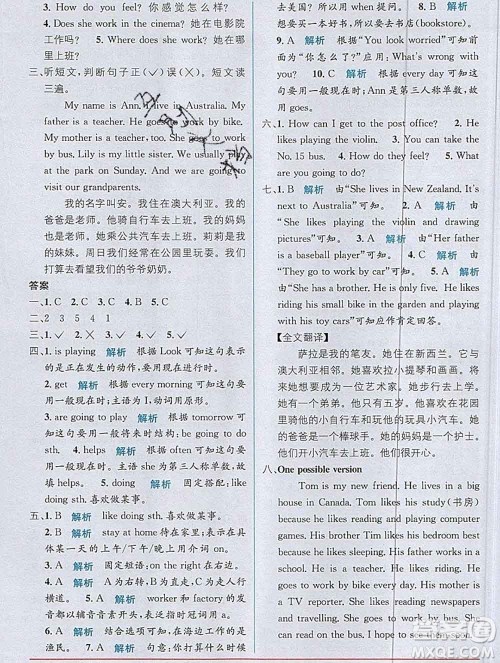 3. How do you feel? 你感觉怎么样?
4. Does she work in the cinema? 她在电影
院工作吗? 5. Where does she work? 她在哪
里上班?
三、听短文,判断句子正(✓)误(×)。短文读
三遍。
My name is Ann. I live in Australia. My
father is a teacher. He goes to work by bike.
My mother is a teacher, too. She goes to work
by bus. Lily is my little sister. We usually play
at the park on Sunday. And we are going to
visit our grandparents.
我的名字叫安。我住在澳大利亚。我的
爸爸是老师。他骑自行车去上班。我的妈妈
也是老师。她乘公共汽车去上班。莉莉是我
的妹妹。周日我们经常在公园里玩耍。我们
打算去看望我们的爷爷奶奶。
答案
一、1. C 2. A 3. B 4. A 5. C
二、2 3 5 4 1
三、1. ✓ 2. × 3. ✓ 4. ✓ 5. ✓
四、1. is playing 解析 根据 Look 可知句子表示
的是正在发生的动作,要用现在进行时。
2. get 解析 根据 every morning 可知句子
要用一般现在时,主语为 I,动词用原形。
3. are going to play 解析 根据 tomorrow 可
知句子要用一般将来时结构:be going to do.
4. goes 解析 根据 every day 可知句子要
用一般现在时。主语 she 为第三人称单数,故
填 goes。 5. to 解析 固定搭配。
6. doing 解析 like doing sth. 喜欢做某事。
五、1. B 解析 like doing sth. 喜欢做某事。
2. B 解析 stay at home 待在家里;表示在具
体某一天的上午/下午/晚上用介词 on。
3. A 解析 固定短语:on the right 在右边。
4. A 解析 A 为右转,B 为直走,C 为走人行
横道。 5. B 解析 worker 和 factory 的发
音都以辅音音素开头,表泛指冠词用 a。
6. B 解析 结合选项可知,在海边工作的是
渔民。 7. A 解析 固定搭配,去上班。
8. B 解析 根据“You can buy some
postcards.”可知去书店(bookstore)。
9. A 解析 根据“You look worried.”可知
为“您怎么了?”意为:What's wrong with
you? 10. C 解析 根据“every day”可知句
子要用一般现在时,Ann 是第三人称单数,动
词用三单。
六、1. How can I get to the post office? 2. He
likes playing the violin. 3. You can take the
No. 15 bus. 4. How do they feel? 5. What
are you going to do?
七、1. B 解析 由“She lives in New Zealand. It's
next to Australia”可知。 2. B 解析 由“She
likes drawing pictures and playing the
violin”可知。 3. A 解析 由“Her father
is a baseball player”可知。 4. C 解析 由
“They go to work by car”可知。 5. A
解析 由“He is only five. He likes riding his
small bike. He likes playing with his toy
cars.”可知应作肯定回答。
【全文翻译】
萨拉是我的笔友。她住在新西兰。它与
澳大利亚相邻。她喜欢画画和拉小提琴。她
将来她想要成为一位艺术家。她有一个弟
弟。他的名字叫休斯。他只有五岁。他喜欢
骑他的小自行车和玩他的玩具小汽车。她
的爸爸是一个棒球手。她的妈妈是一个护士。
他们开小汽车去上班。他们非常幸福。
八、One possible version
Tom is my new friend. He lives in a big
house in Canada. Tom likes study(书房)
because he likes reading and playing computer
games. His brother likes the bedroom because
he likes sleeping. His sister likes the kitchen
because she likes cooking. Tom's dad is a
worker. He goes to work by car. His mom is
a TV reporter. He likes reading newspapers
and travelling. She usually goes to work by
bus. She can listen to music and read books
on the bus.
答案圈
MXQE.COM